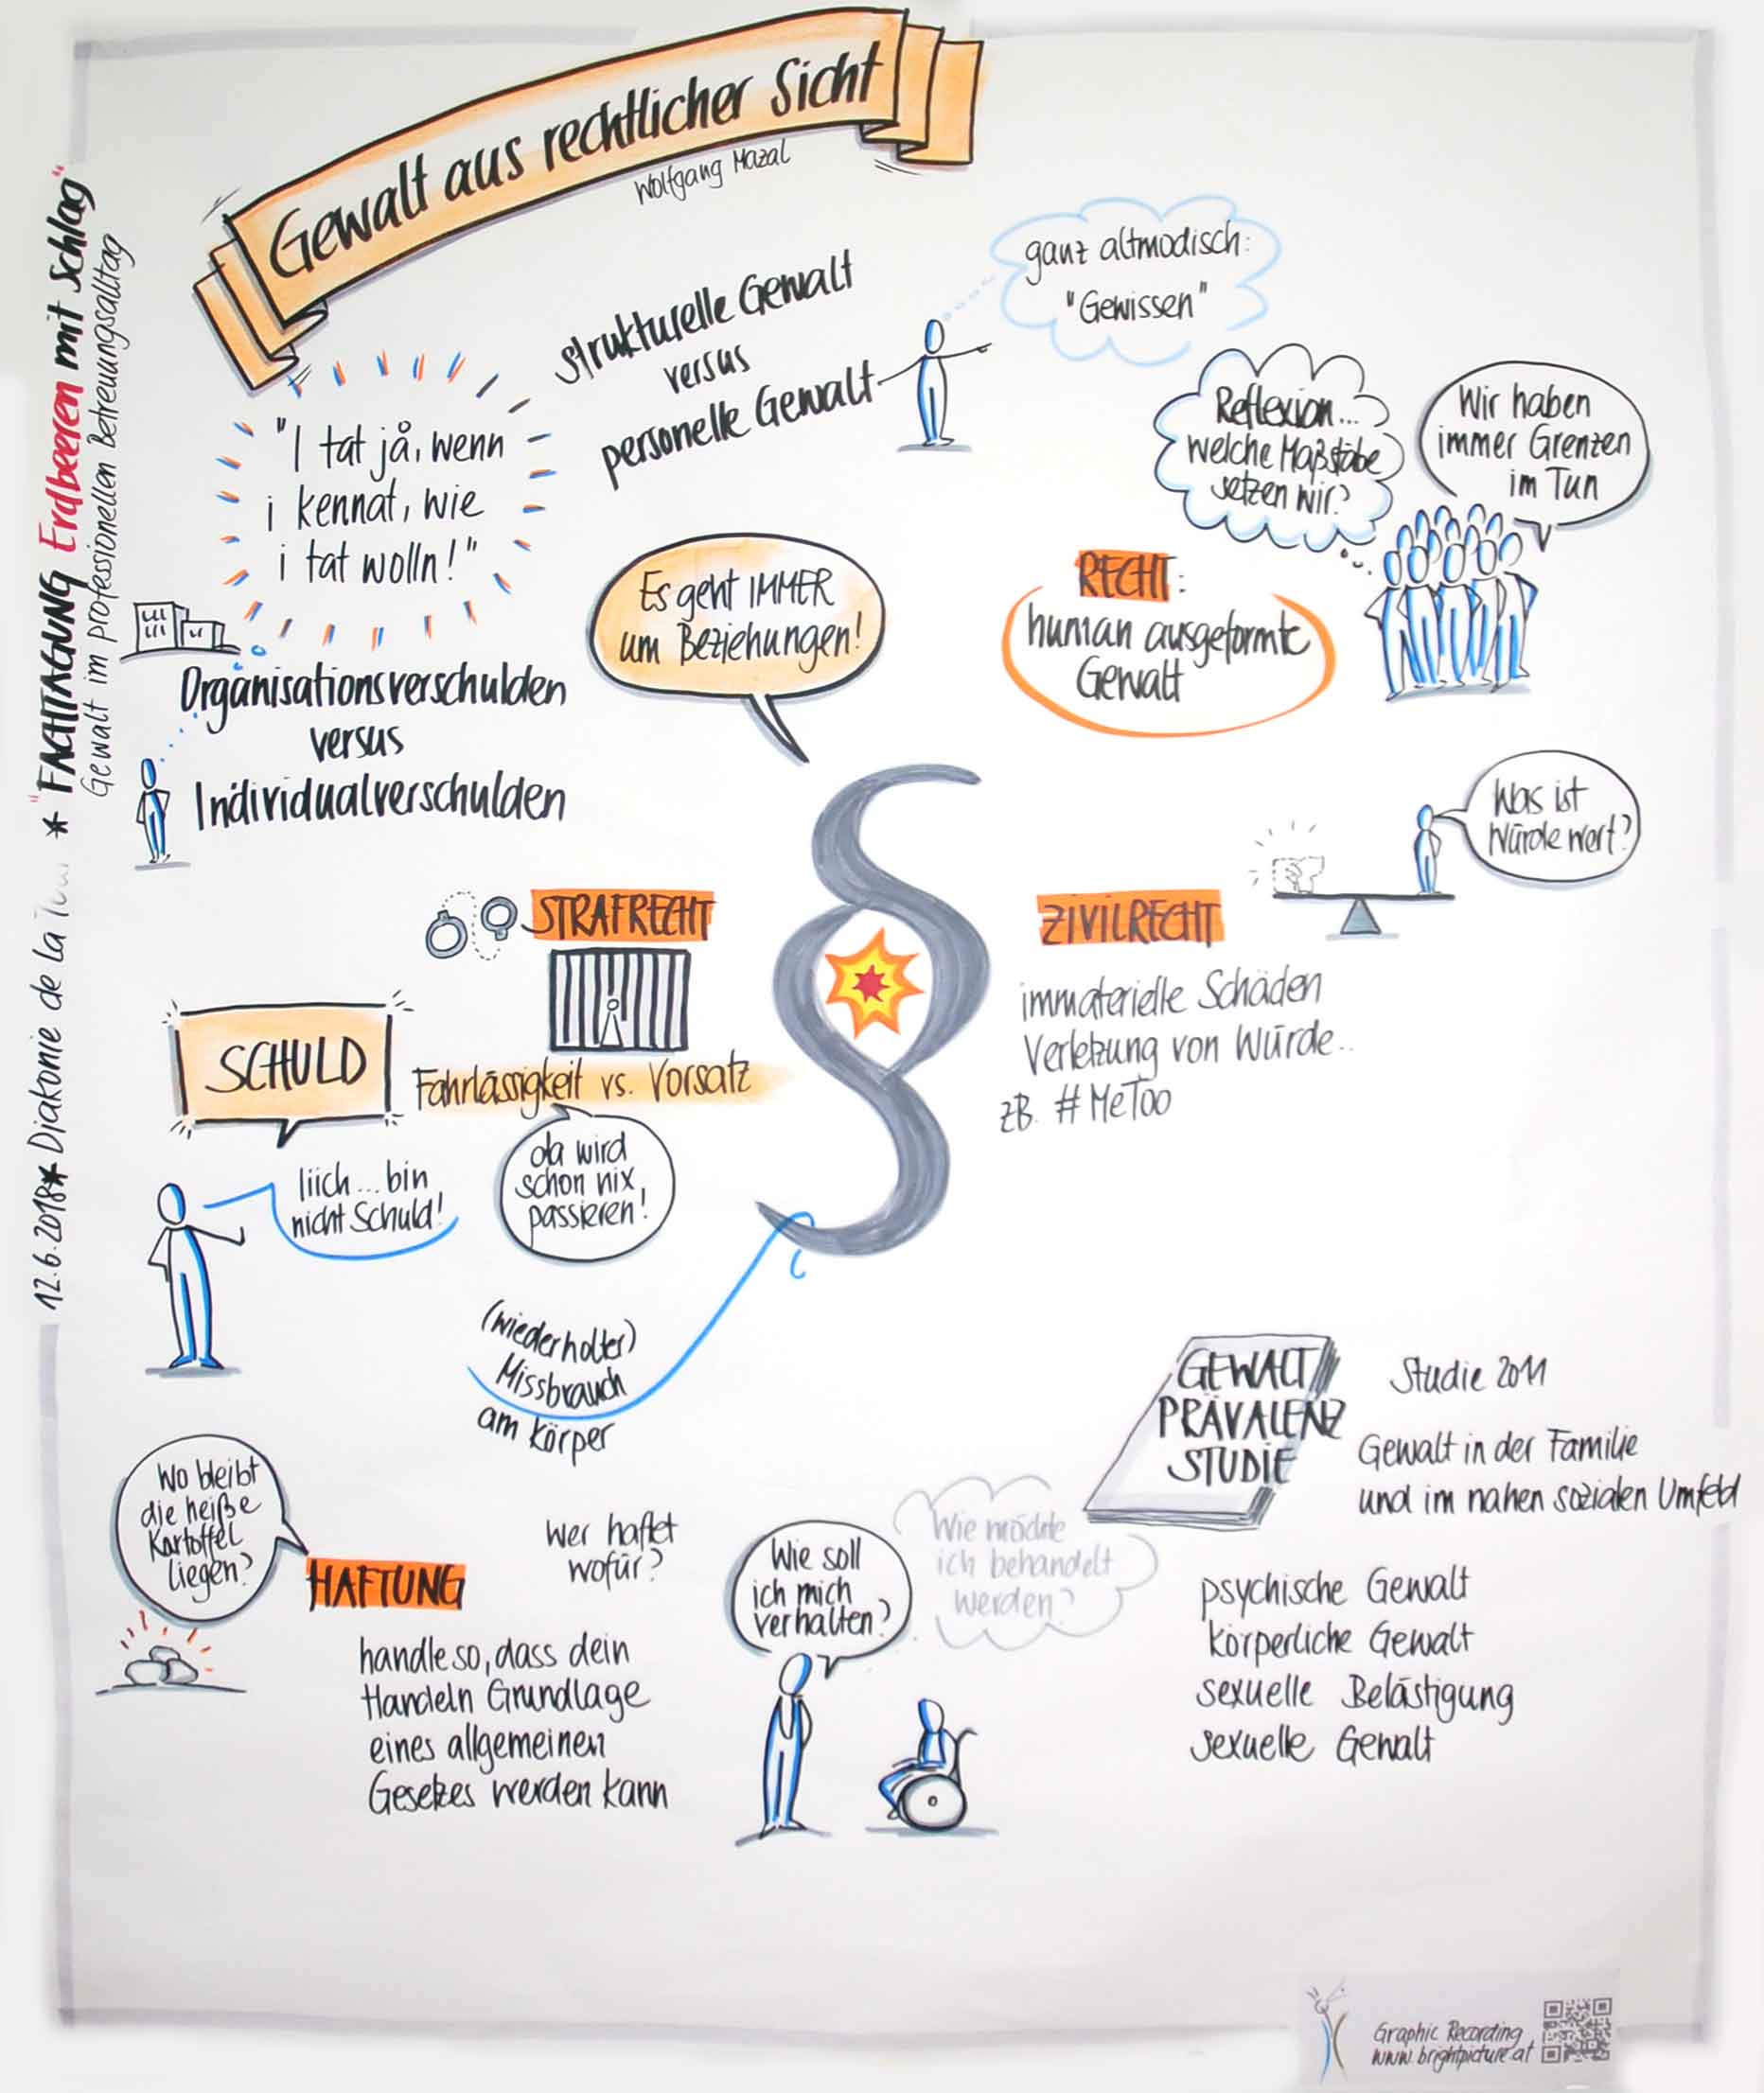 Gewalt aus rechtlicher Sicht
Wolfgang Mazal
12.6.2018 * Diakonie de la * "FACHTAGUNG Erdbeeren mit Schlag"
Gewalt im professionellen Betreuungsalltag
"I tat jå, wenn
i kennat, wie
i tat wolln!"
strukturelle Gewalt
versus
personelle Gewalt
ganz altmodisch:
"Gewissen"
Reflexion...
welche Maßstäbe
setzen wir?
Wir haben
immer Grenzen
im Tun
RECHT:
human ausgeformte
Gewalt
Es geht IMMER
um Beziehungen!
Organisationsverschulden
versus
Individualverschulden
Was ist
Würde wert?
STRAFRECHT
ZIVILRECHT
immaterielle Schäden
Verletzung von Würde..
zB. #MeToo
SCHULD
Fahrlässigkeit vs. Vorsatz
da wird
schon nix
passieren!
Iiich... bin
nicht Schuld!
(wiederholter)
Missbrauch
am Körper
GEWALT
PRÄVALENZ
STUDIE
Studie 2011
Gewalt in der Familie
und im nahen sozialen Umfeld
psychische Gewalt
körperliche Gewalt
sexuelle Belästigung
sexuelle Gewalt
Wo bleibt
die heiße
Kartoffel
liegen?
HAFTUNG
wer haftet
wofür?
handle so, dass dein
Handeln Grundlage
eines allgemeinen
Gesetzes werden kann
Wie soll
ich mich
verhalten?
Wie möchte
ich behandelt
werden?
Graphic Recording
www.brightpicture.at